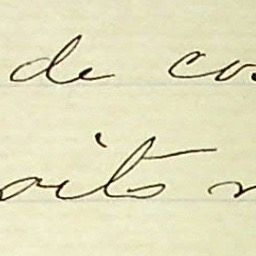 de co
oits